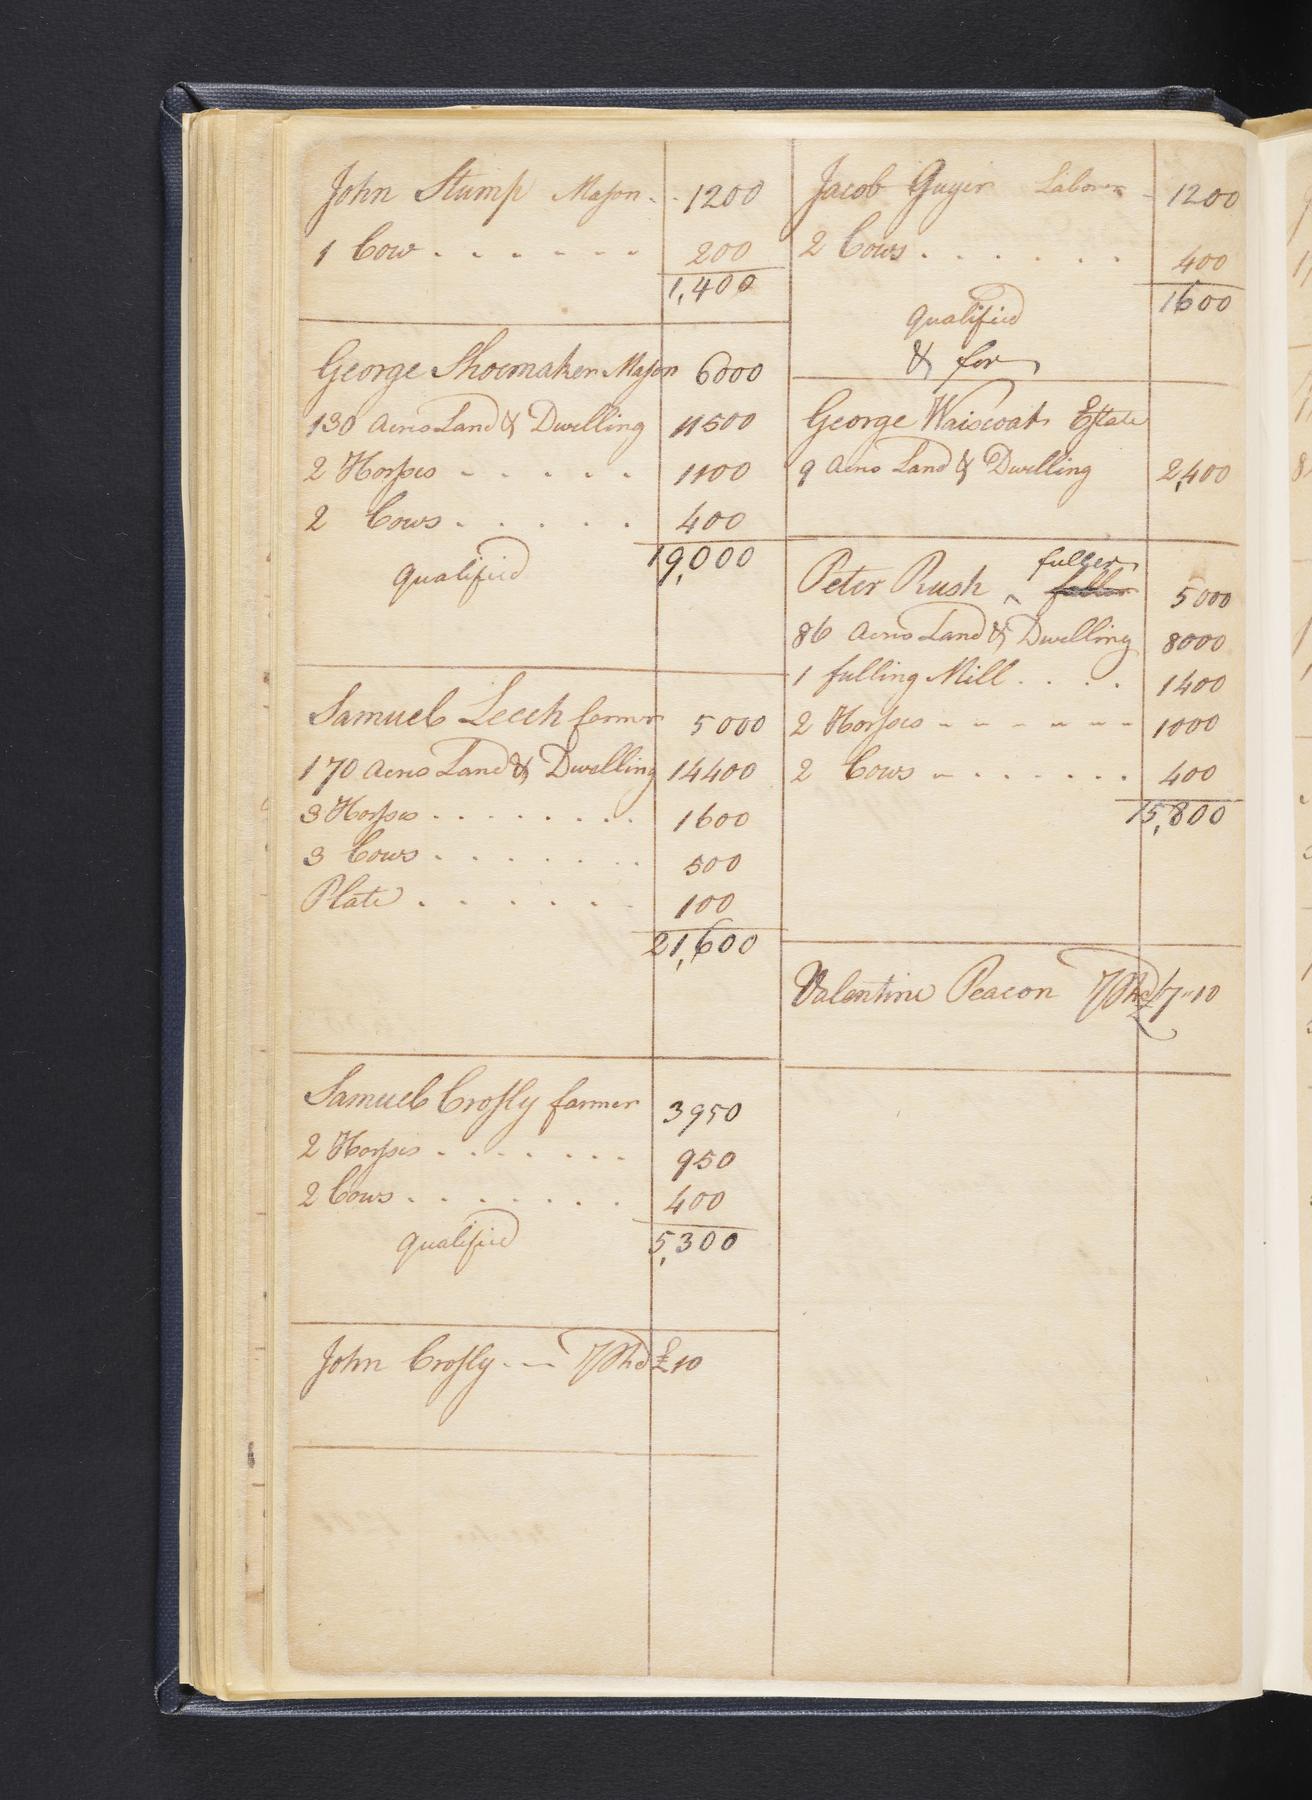 John Stump Mason - - 1200
1 Cow - - - - - - 200
1,400
George Shoemaker Mason 6000
130 Acres Land & Dwelling 11500
2 Horses - - - - - 1100
2 Cows - - - - - 400
qualified 19,000
Samuel Leech farmer 5000
170 Acres Land & Dwelling 14400
3 Horses - - - - - - - - 1600
3 Cows - - - - - - - 500
Plate - - - - - - 100
21,600
Samuel Crosly farmer 3950
2 Horses - - - - - - - 950
2 Cows - - - - - - - 400
qualified 5,300
John Crosly - - - £10
Jacob Guyer Laborer - 1200
2 Cows - - - - - - 400
1600
qualified
& for
George Waiscoat Estate
9 Acres Land & Dwelling 2,400
fuller
Peter Rush ^ 5000
86 Acres Land & Dwelling 8000
1 fulling Mill - - - - 1400
2 Horses - - - - - - 1000
2 Cows - - - - - - - 400
15,800
Valentine Peacon £7-10